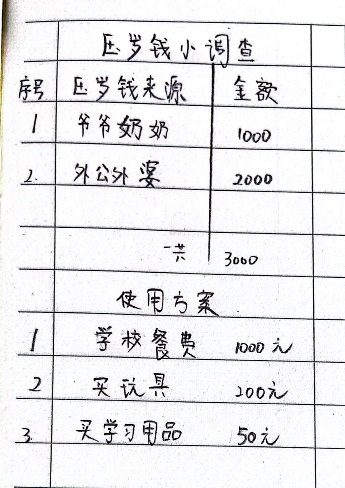 压岁钱小调查
序号 压岁钱来源 金额
1 爷爷奶奶 1000
2. 外公外婆 2000
一共 3000
使用方案
1 学校餐费 1000元
2 买玩具 200元
3. 买学习用品 50元